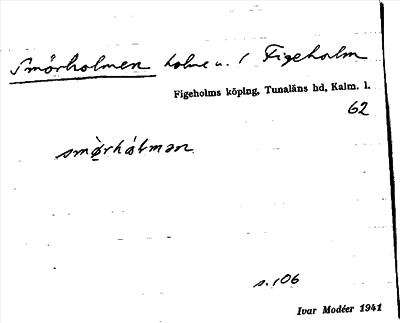 Smörholmen holme u. / Figeholm
Figeholms köping, Tunaläns hd, Kalm. l.
62
smö̀rhólmən
s. 106
Ivar Modéer 1941